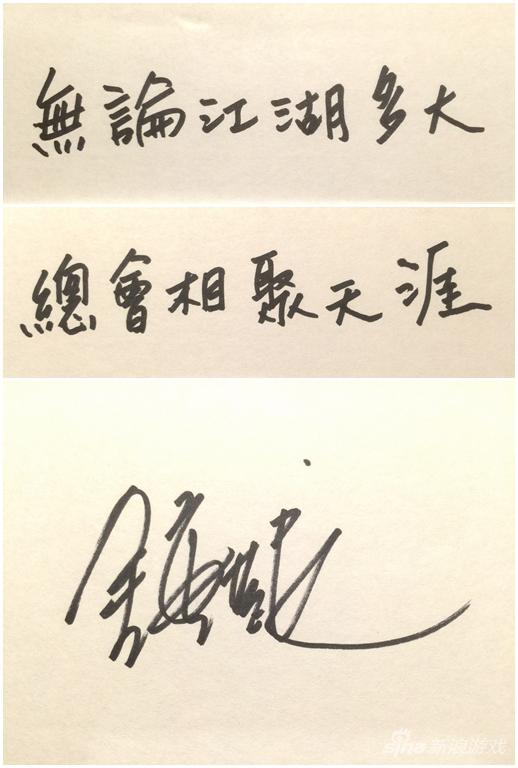 無論江湖多大
總會相聚天涯
sina新浪游戏